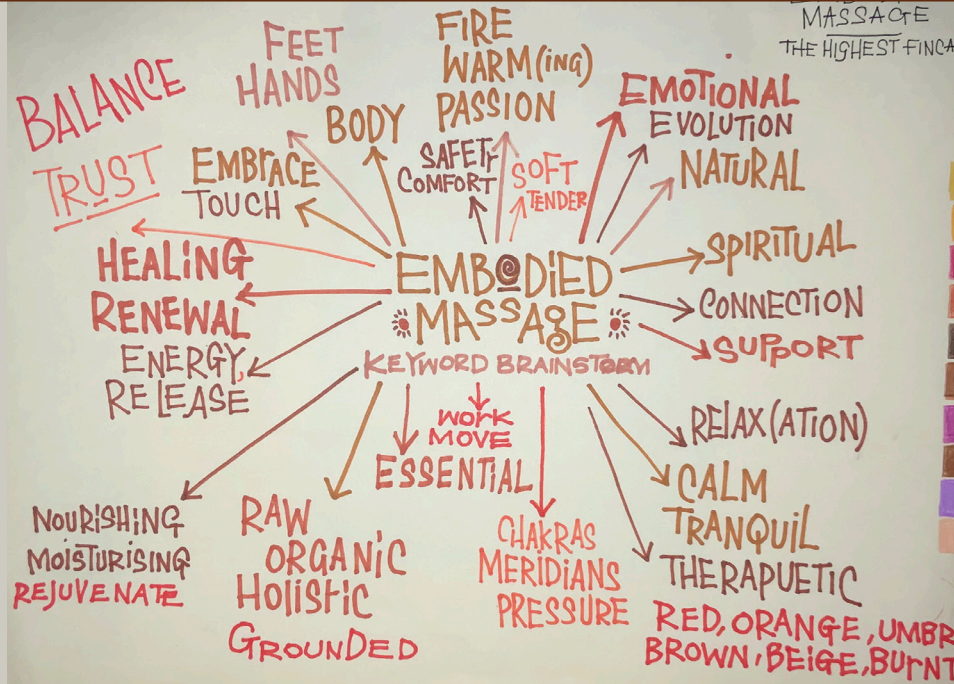 MASSAGE
THE HIGHEST FINCA
FEET
HANDS
FIRE
WARM(ing)
PASSION
BALANCE
TRUST
BODY
EMBRACE
TOUCH
SAFETY
COMFORT
SOFT
TENDER
EMOTIONAL
EVOLUTION
NATURAL
HEALING
RENEWAL
ENERGY,
RELEASE
EMBODIED
MASSAGE
KEYWORD BRAINSTORM
SPIRITUAL
CONNECTION
SUPPORT
WORK
MOVE
ESSENTIAL
RELAX(ATION)
CALM
TRANQUIL
THERAPUETIC
NOURISHING
MOISTURISING
REJUVENATE
RAW
ORGANIC
HOLISTIC
GROUNDED
CHAKRAS
MERIDIANS
PRESSURE
RED, ORANGE, UMBR
BROWN, BEIGE, BURNT